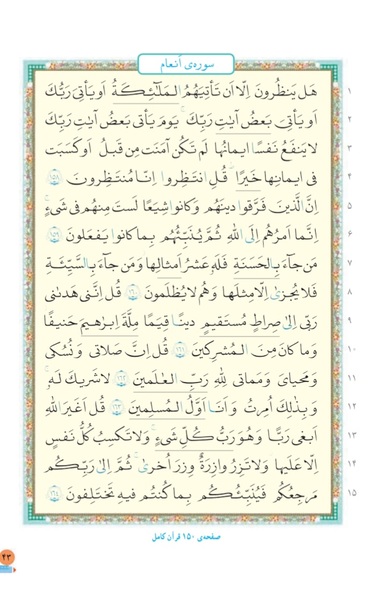 سوره‌ی أنعام
هَل يَنظُرونَ اِلّا اَن تَأتِيَهُمُ المَلٰئِكَةُ اَو يَأتِيَ رَبُّكَ ١
اَو يَأتِيَ بَعضُ ءايٰتِ رَبِّكَ ۗ يَومَ يَأتي بَعضُ ءايٰتِ رَبِّكَ ٢
لا يَنفَعُ نَفسًا ايمانُها لَم تَكُن ءامَنَت مِن قَبلُ اَو كَسَبَت ٣
في ايمانِها خَيرًا ۗ قُلِ انتَظِروا اِنّا مُنتَظِرونَ ﴿١٥٨﴾ ٤
اِنَّ الَّذينَ فَرَّقوا دينَهُم وَ كانوا شِيَعًا لَستَ مِنهُم في شَيءٍ ۚ ٥
اِنَّما اَمرُهُم اِلَى اللهِ ثُمَّ يُنَبِّئُهُم بِما كانوا يَفعَلونَ ﴿١٥٩﴾ ٦
مَن جاءَ بِالحَسَنَةِ فَلَهُ عَشرُ اَمثالِها وَ مَن جاءَ بِالسَّيِّئَةِ ٧
فَلا يُجزىٰ اِلّا مِثلَها وَ هُم لا يُظلَمونَ ﴿١٦٠﴾ قُل اِنَّني هَدٰني ٨
رَبّي اِلىٰ صِراطٍ مُستَقيمٍ دينًا قِيَمًا مِلَّةَ اِبرٰهيمَ حَنيفًا ۚ ٩
وَ ما كانَ مِنَ المُشرِكينَ ﴿١٦١﴾ قُل اِنَّ صَلاتي وَ نُسُكي ١٠
وَ مَحيايَ وَ مَماتي لِلّٰهِ رَبِّ العٰلَمينَ ﴿١٦٢﴾ لا شَريكَ لَهُ ۖ ١١
وَ بِذٰلِكَ اُمِرتُ وَ اَنَا اَوَّلُ المُسلِمينَ ﴿١٦٣﴾ قُل اَغَيرَ اللهِ ١٢
اَبغي رَبًّا وَ هُوَ رَبُّ كُلِّ شَيءٍ ۚ وَ لا تَكسِبُ كُلُّ نَفسٍ ١٣
اِلّا عَلَيها ۚ وَ لا تَزِرُ وازِرَةٌ وِزرَ اُخرىٰ ۚ ثُمَّ اِلىٰ رَبِّكُم ١٤
مَرجِعُكُم فَيُنَبِّئُكُم بِما كُنتُم فيهِ تَختَلِفونَ ﴿١٦٤﴾ ١٥
صفحه‌ی ۱۵۰ قرآن کامل
۴۳